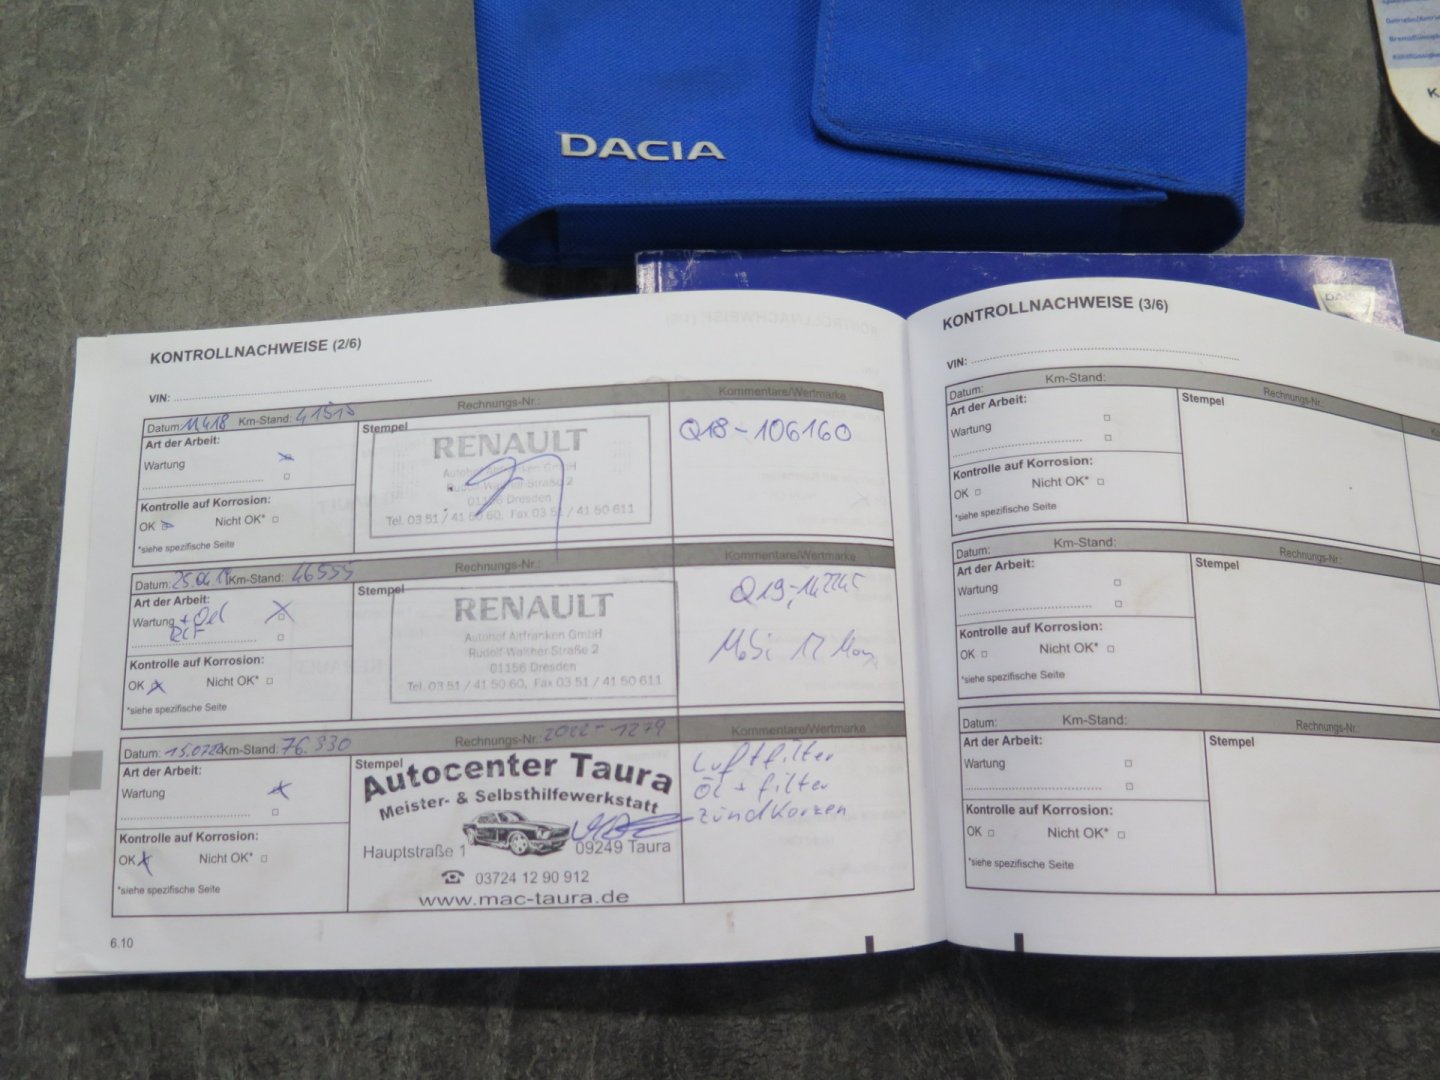 DACIA
KONTROLLNACHWEISE (2/6)
VIN:
Datum: 11.4.18 Km-Stand: 41515 Rechnungs-Nr.: Kommentare/Wertmarke
Art der Arbeit:
Wartung
Kontrolle auf Korrosion:
OK Nicht OK*
*siehe spezifische Seite
Stempel
RENAULT
Autohof Altfranken GmbH
Rudolf-Walther-Straße 2
01156 Dresden
Tel. 03 51 / 41 50 60, Fax 03 51 / 41 50 611
Q18-106160
Datum: 25.04.19 Km-Stand: 46555 Rechnungs-Nr.: Kommentare/Wertmarke
Art der Arbeit:
Wartung + Oel
Kontrolle auf Korrosion:
OK Nicht OK*
*siehe spezifische Seite
Stempel
RENAULT
Autohof Altfranken GmbH
Rudolf-Walther-Straße 2
01156 Dresden
Tel. 03 51 / 41 50 60, Fax 03 51 / 41 50 611
MoBi 12 Mon
Datum: 15.0722 Km-Stand: 76.330 Rechnungs-Nr.: 2022-1279 Kommentare/Wertmarke
Art der Arbeit:
Wartung
Kontrolle auf Korrosion:
OK Nicht OK*
*siehe spezifische Seite
Stempel
Autocenter Taura
Meister- & Selbsthilfewerkstatt
Hauptstraße 1 09249 Taura
☎ 03724 12 90 912
www.mac-taura.de
Luftfilter
Öl + filter
Zündkerzen
6.10
KONTROLLNACHWEISE (3/6)
VIN:
Datum: Km-Stand: Rechnungs-Nr.:
Art der Arbeit:
Wartung
Kontrolle auf Korrosion:
OK Nicht OK*
*siehe spezifische Seite
Stempel
Datum: Km-Stand: Rechnungs-Nr.:
Art der Arbeit:
Wartung
Kontrolle auf Korrosion:
OK Nicht OK*
*siehe spezifische Seite
Stempel
Datum: Km-Stand: Rechnungs-Nr.:
Art der Arbeit:
Wartung
Kontrolle auf Korrosion:
OK Nicht OK*
*siehe spezifische Seite
Stempel